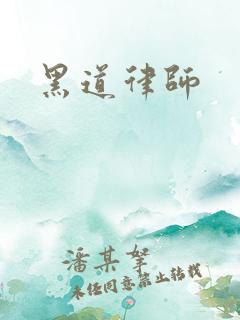 黑道律師
潘某拏
未經同意禁止轉載